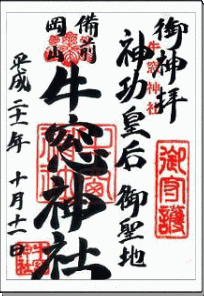 御神拝
牛窓神社
神功皇后 御聖地
御守護
備前
岡山
牛窓神社
平成二十一年 十月十一日